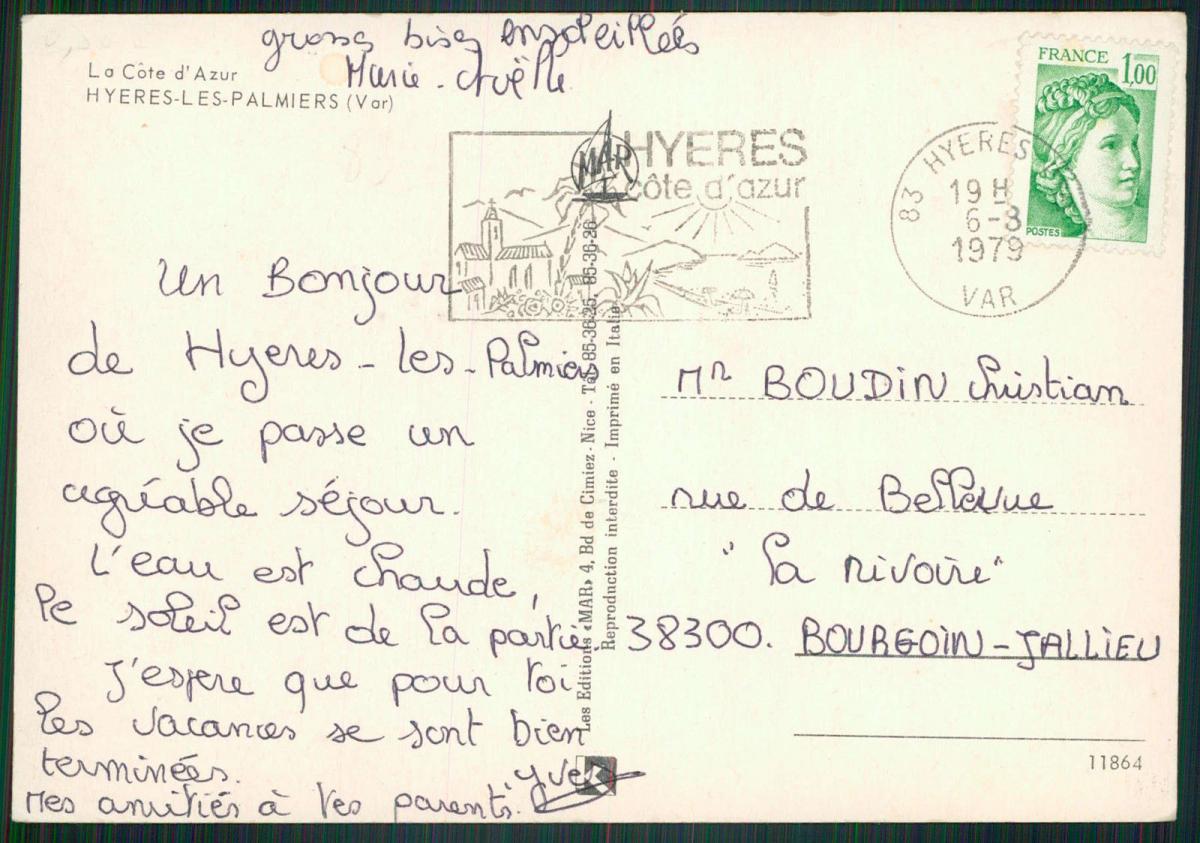 grosses bises ensoleillées
Marie-Noëlle
La Côte d'Azur
HYERES-LES-PALMIERS (Var)
FRANCE 1,00
POSTES
MAR
HYERES
côte d'azur
83 HYERES
19 H
6-8
1979
VAR
Un Bonjour
de Hyeres-les-Palmiers
où je passe un
agréable séjour.
L'eau est chaude,
le soleil est de la partie
J'espere que pour toi
les vacances se sont bien
terminées.
Mes amitiés à tes parents.
Yves
Les Editions «MAR» 4, Bd de Cimiez - Nice - Tél. 85-36-25, 85-36-26
Reproduction interdite - Imprimé en Italie
Mr BOUDIN Christian
rue de Bellevue
"la rivoire"
38300. BOURGOIN-JALLIEU
11864